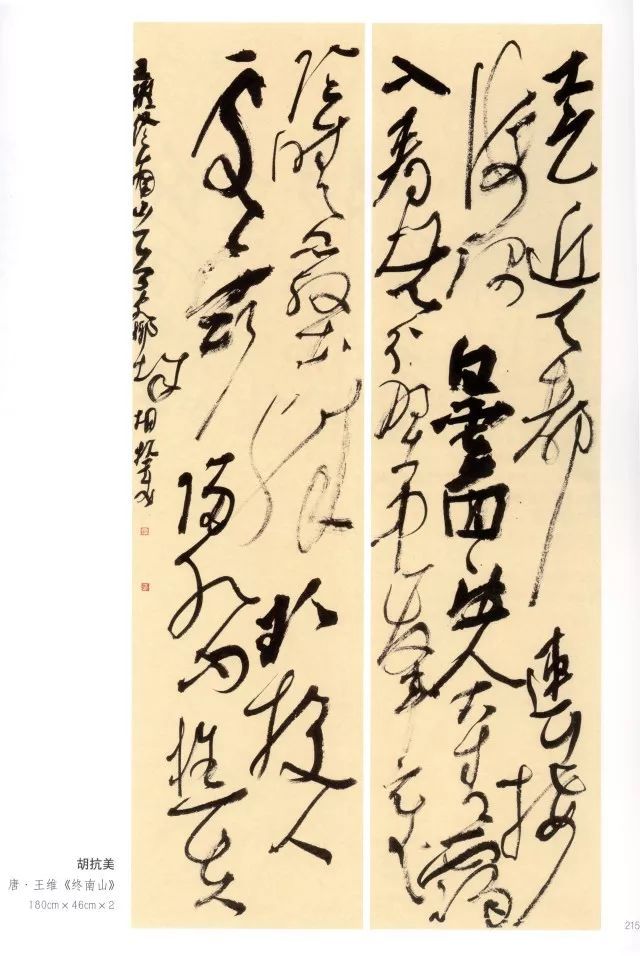 太乙近天都連山接
海隅白雲回望合青靄
入看無分野中峰變
陰晴衆壑殊欲投人
處宿隔水問樵夫
王維終南山 胡抗美
胡抗美
唐·王维《终南山》
180cm×46cm×2
215